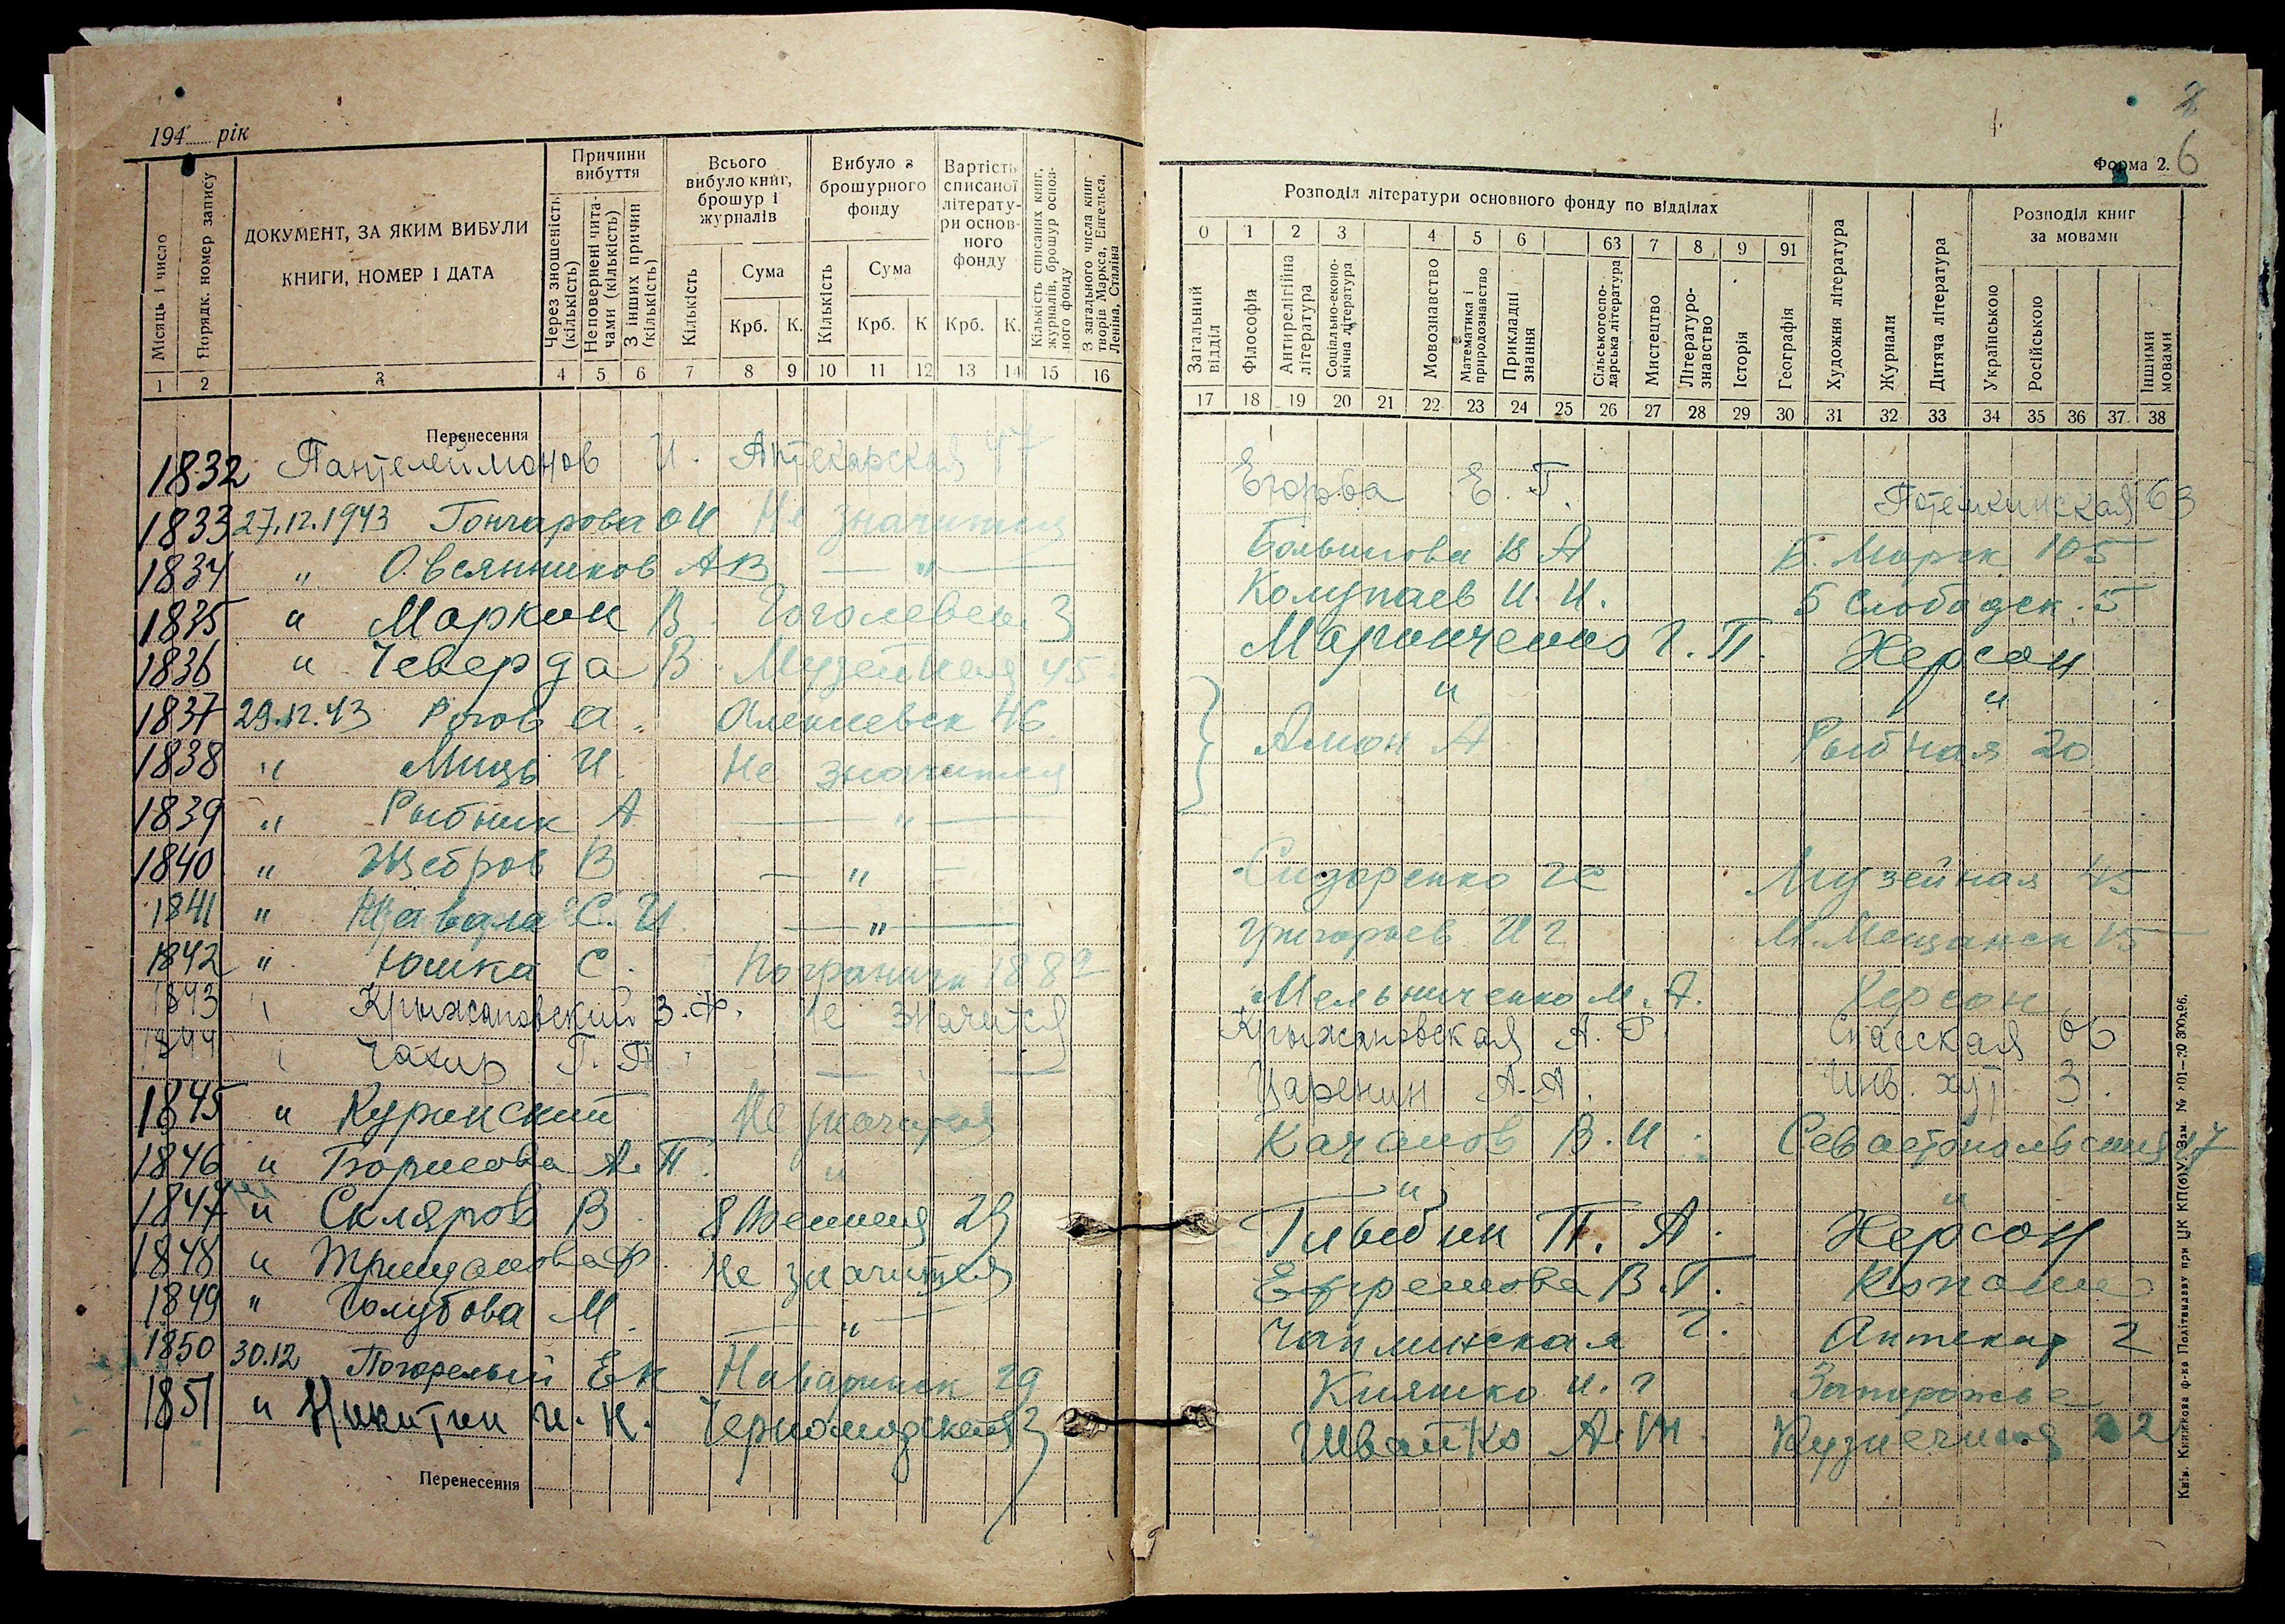 194 рік
Місяць і число
Порядк. номер запису
ДОКУМЕНТ, ЗА ЯКИМ ВИБУЛИ
КНИГИ, НОМЕР І ДАТА
Причини вибуття
Через зношеність (кількість)
Неповернені читачами (кількість)
З інших причин (кількість)
Всього вибуло книг, брошур і журналів
Кількість
Сума
Крб. К.
Вибуло з брошурного фонду
Кількість
Сума
Крб. К
Вартість списаної літератури основного фонду
Крб. К.
Кількість списаних книг, журналів, брошур основного фонду
З загального числа книг творів Маркса, Енгельса, Леніна, Сталіна
1 2 3 4 5 6 7 8 9 10 11 12 13 14 15 16
Перенесення
1832 Пантелеймонов И. Аптекарская 47
1833 27.12.1943 Гончарова О И Не значится
1834 " Овсянников А В — " —
1835 " Маркин В Гоголевск 3
1836 " Чеверда В. Музейная 45
1837 29.12.43 Рогов А. Алексеевск 46
1838 " Миць И. Не значится
1839 " Рыбник А — " —
1840 " Жебров В — " —
1841 " С. И — " —
1842 " Юшка С. Погранич 188
1843 " Крыжановский З. Не значится
1844 " Чахир Г. П.
1845 " Куринский Не значится
1846 " Борисова А. П. "
1847 " Скляров В. 29
1848 " Не значится
1849 " Голубова М. — " —
1850 30.12 Погорелый Е К Наваринск 29
1851 " Никитин И. К.
Перенесення
6
Форма 2.
Розподіл літератури основного фонду по відділах
0 1 2 3 4 5 6 63 7 8 9 91
Загальний відділ
Філософія
Антирелігійна література
Соціально-економічна література
Мовознавство
Математика і природознавство
Прикладні знання
Сільськогосподарська література
Мистецтво
Літературознавство
Історія
Географія
Художня література
Журнали
Дитяча література
Розподіл книг за мовами
Українською
Російською
Іншими мовами
17 18 19 20 21 22 23 24 25 26 27 28 29 30 31 32 33 34 35 36 37 38
Егорова Е. Г. Потемкинская 63
Большова А Б. Морск 105
Колупаев И. И. Б Слободск. 5
Маринченко Г. П. Херсон
" "
Амон А Рыбная 20
Сидоренко Г С Музейная 45
Григорьев И Г М. Мещанск 15
Мельниченко М. А. Херсон
Крыжановская А. Г. Спасская
Царенин А. А. Инв. хут. 3.
Качанов В. И. Севастопольская 17
" "
Глыбин П. А. Херсон
Ефремова В. Г.
Чаплинская Г. Аптекар 2
Кияшко И. Г Запорожье
Швайко А. М. Кузнечная 2
Київ. Книжкова ф-ка Політвидаву при ЦК КП(б)У. Зам.